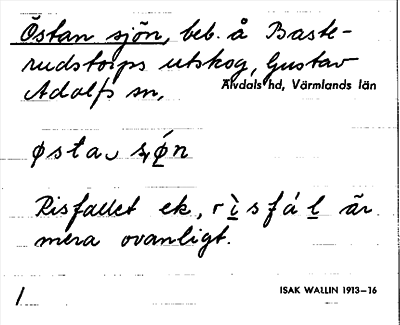 Östan sjön, beb. å Baste-
rudstorps utskog, Gustav
Adolfs sn, Älvdals hd, Värmlands län
østa
Risfallet ek, är
mera ovanligt.
1
ISAK WALLIN 1913–16